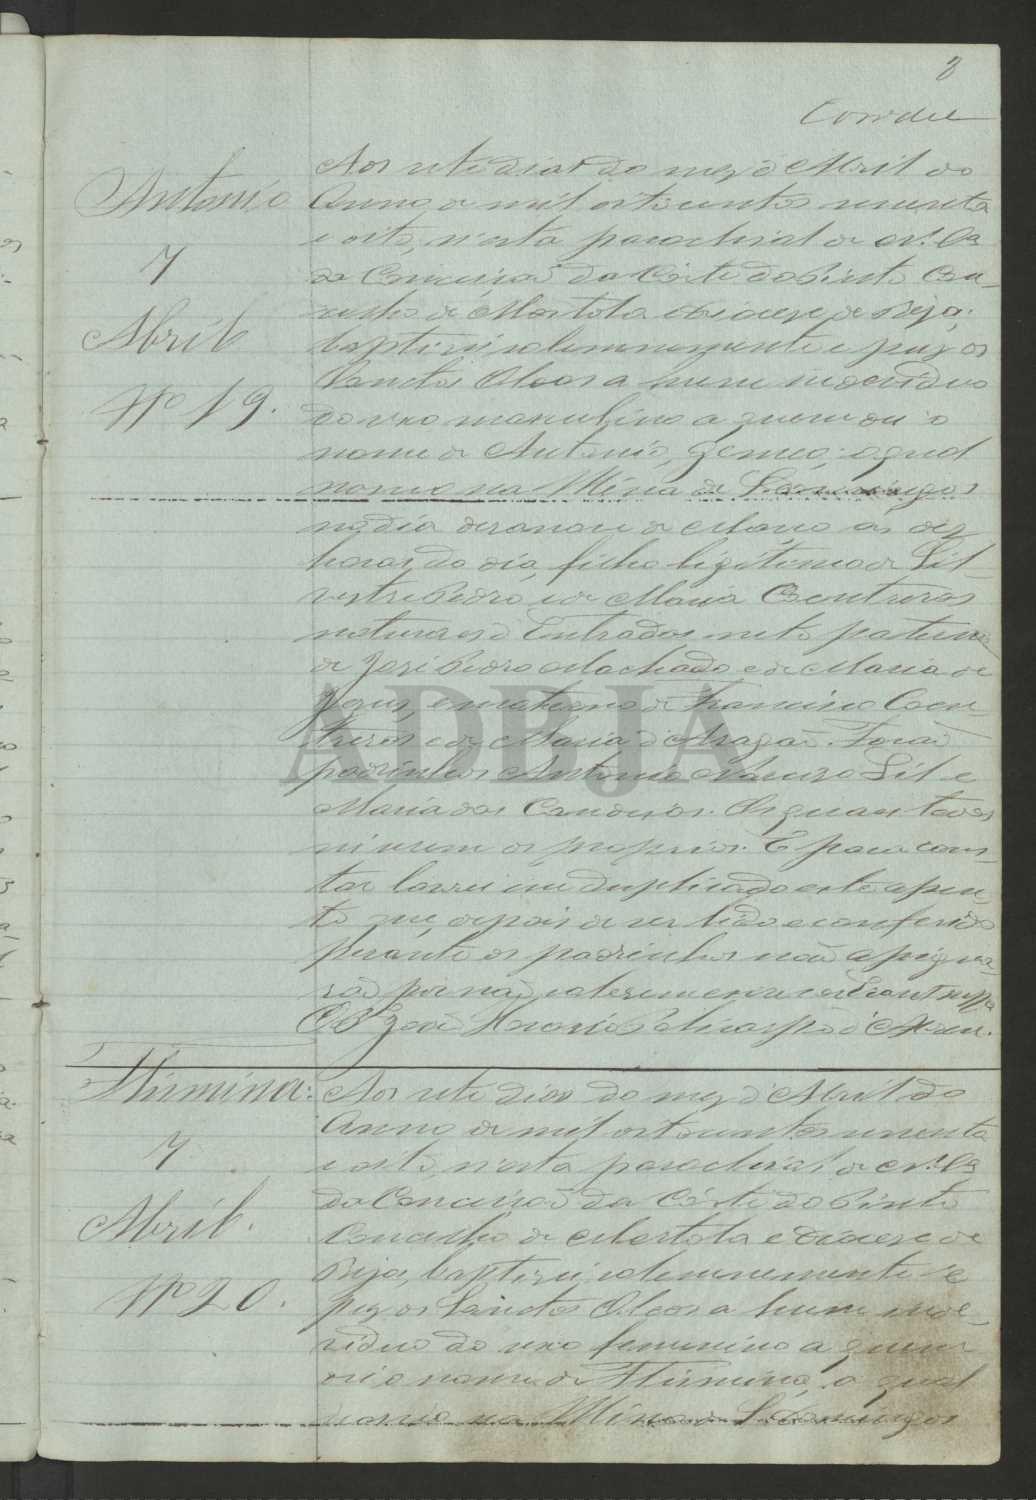 8
Antonio
7
Abril
Nº 19.
Aos sete dias do mez d'Abril do
Anno de mil oitocentos noventa
e oito, n'esta parochial de N.ª Sª
da Conceição da Côrte do Pinto Con-
celho de Mertola e Diocese de Beja;
baptizei solemnemente e puz os
Sanctos Oleos a hum individuo
do sexo masculino a quem dei o
nome de Antonio, gemeo, o qual
nasceu na Mina de S. Domingos
no dia de Março as dez
horas do dia, filho legitimo de Sil-
vestre Pedro, e de Maria
naturaes d'Entradas, neto paterno
de José Pedro Machado e de Maria de
Jesus, e materno de Francisco
e de Maria d'Aragão. Forão
padrinhos Antonio e
Maria das Candeias. Os quaes todos
os proprios. E para cons-
tar lavrei em duplicado este assen-
to que, depois de ser lido e conferido
perante os padrinhos não assigna-
rão por não saberem escrever. Era ut supra
O P. João
Firmina:
7
Abril.
Nº 20.
Aos sete dias do mez d'Abril do
Anno de mil oitocentos noventa
e oito, n'esta parochial de N.ª Sª
da Conceição da Côrte do Pinto
Concelho de Mertola e Diocese de
Beja, baptizei solemnemente e
puz os Sanctos Oleos a hum indi-
viduo do sexo femenino a quem
dei o nome de Firmina, a qual
nasceu na Mina de S. Domingos
ADBJA